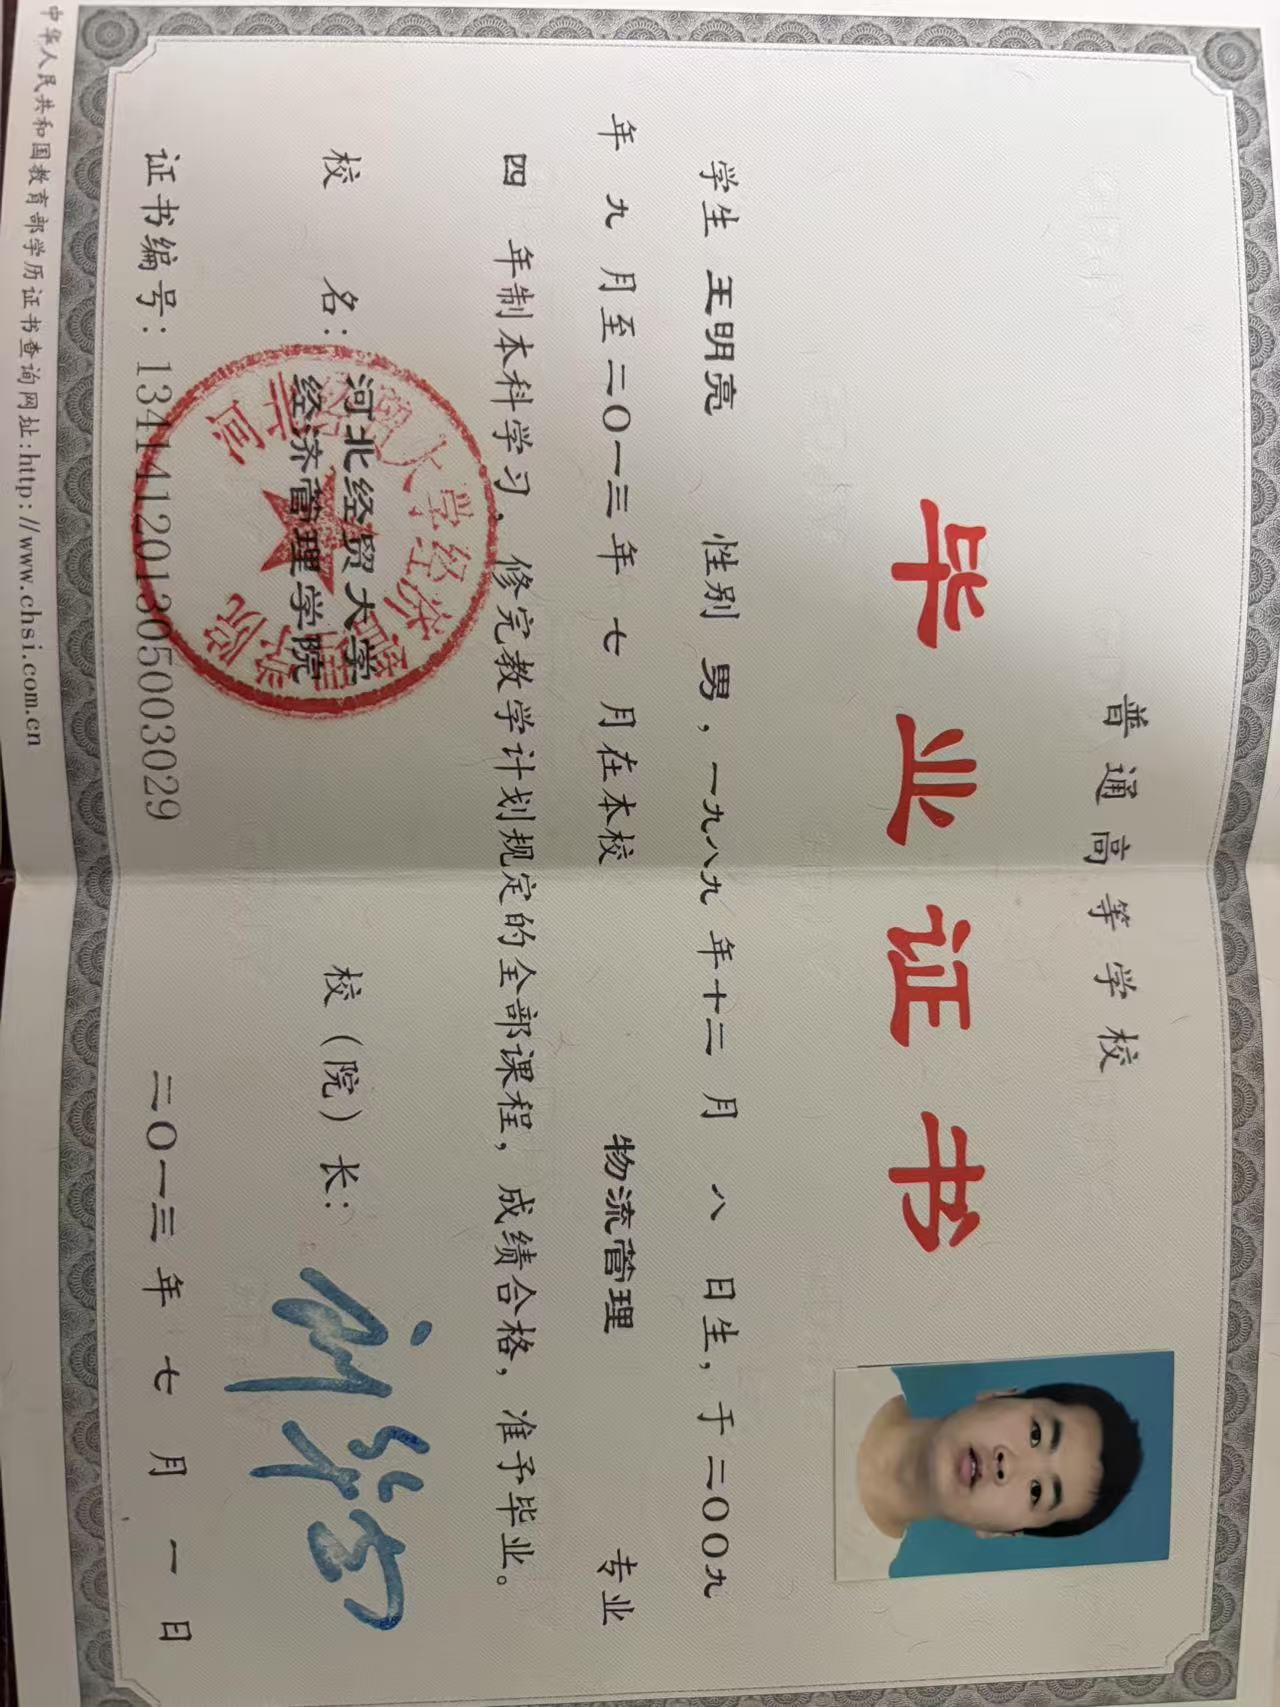 普通高等学校
毕业证书
学生 王明亮 性别 男，一九八九 年十二 月 八 日生，于二〇〇九
年 九 月至二〇一三年 七 月在本校 物流管理 专业
四 年制本科学习，修完教学计划规定的全部课程，成绩合格，准予毕业。
校 名：河北经贸大学
经济管理学院
校（院）长：
证书编号：134141201305003029
二〇一三 年 七 月 一 日
中华人民共和国教育部学历证书查询网址：http://www.chsi.com.cn